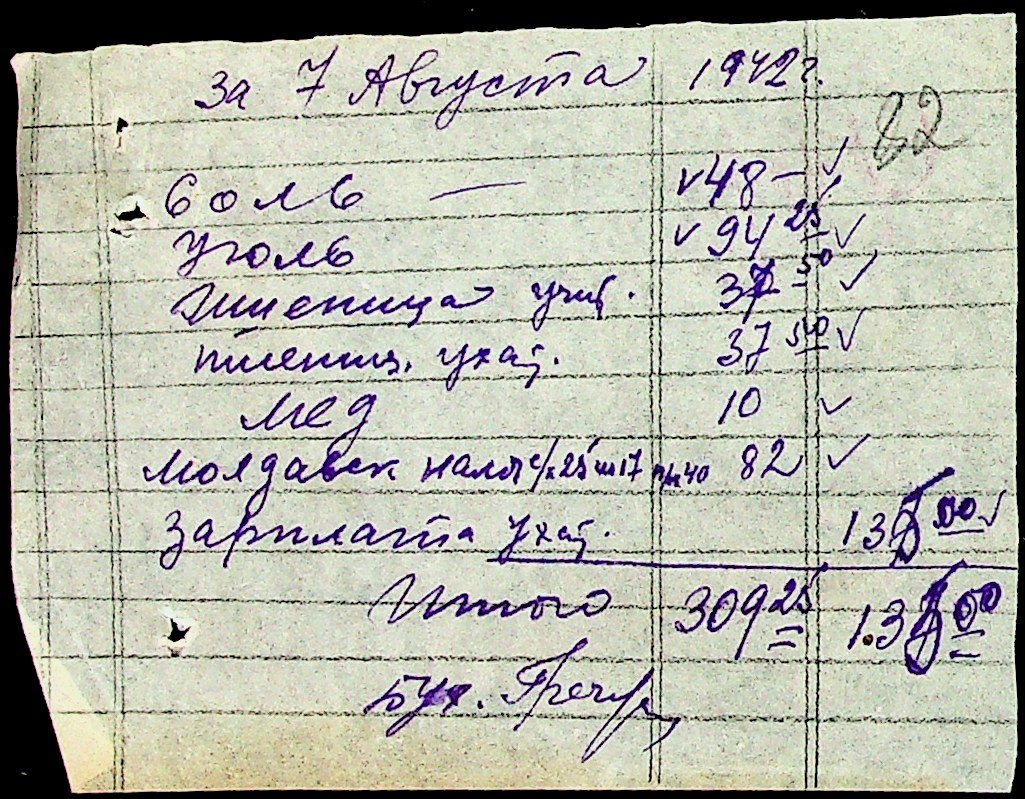 за 7 Августа 1942 г.
82
Соль — 48 —
Уголь 94 25
Пшеница учит. 37 50
пшениц. ухац. 37 50
мед 10
Молдавск налог с/х 25 ш 17 40 82
Зарплата ухац. 00
Итого 309 25
бух.